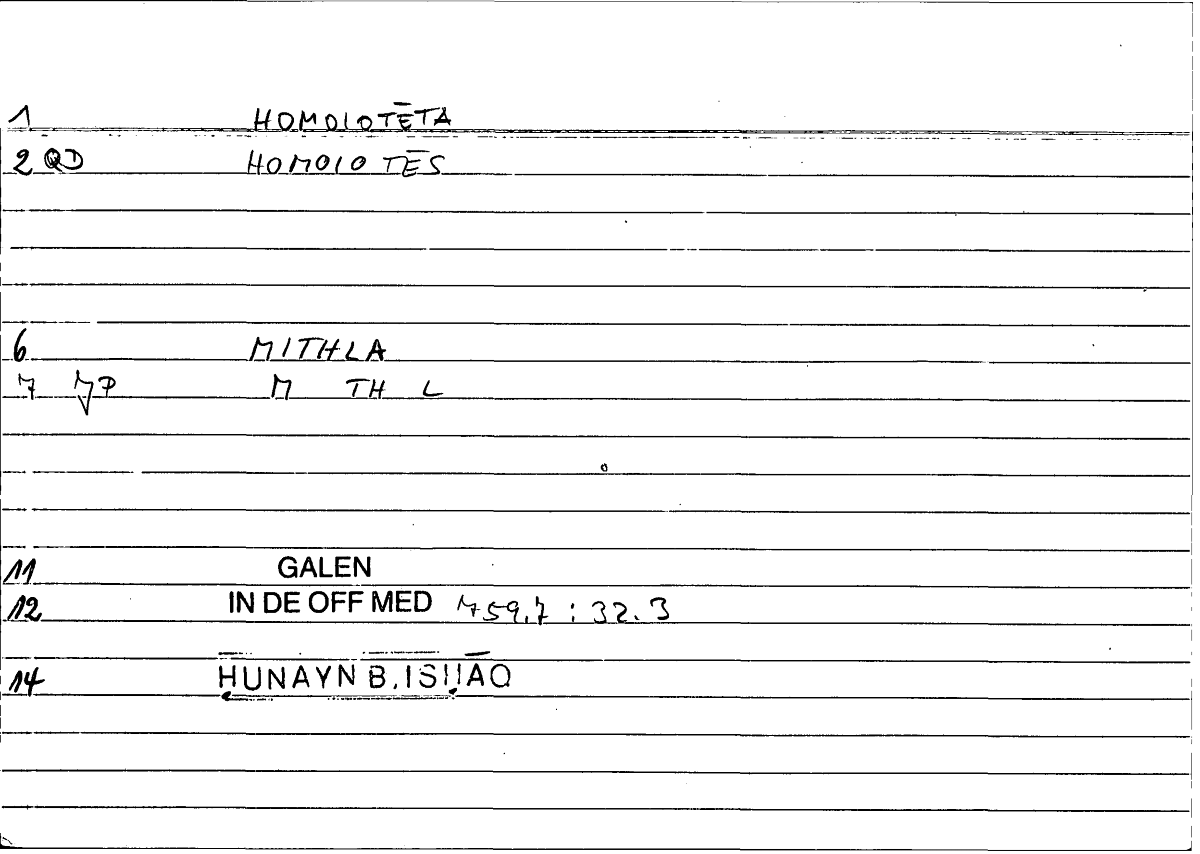 1 HOMOIOTĒTA
2 QD HOMOIOTĒS
6 MITHLA
7 M TH L
11 GALEN
12 IN DE OFF MED 759.7 : 32.3
14 ḤUNAYN B. ISḤĀQ